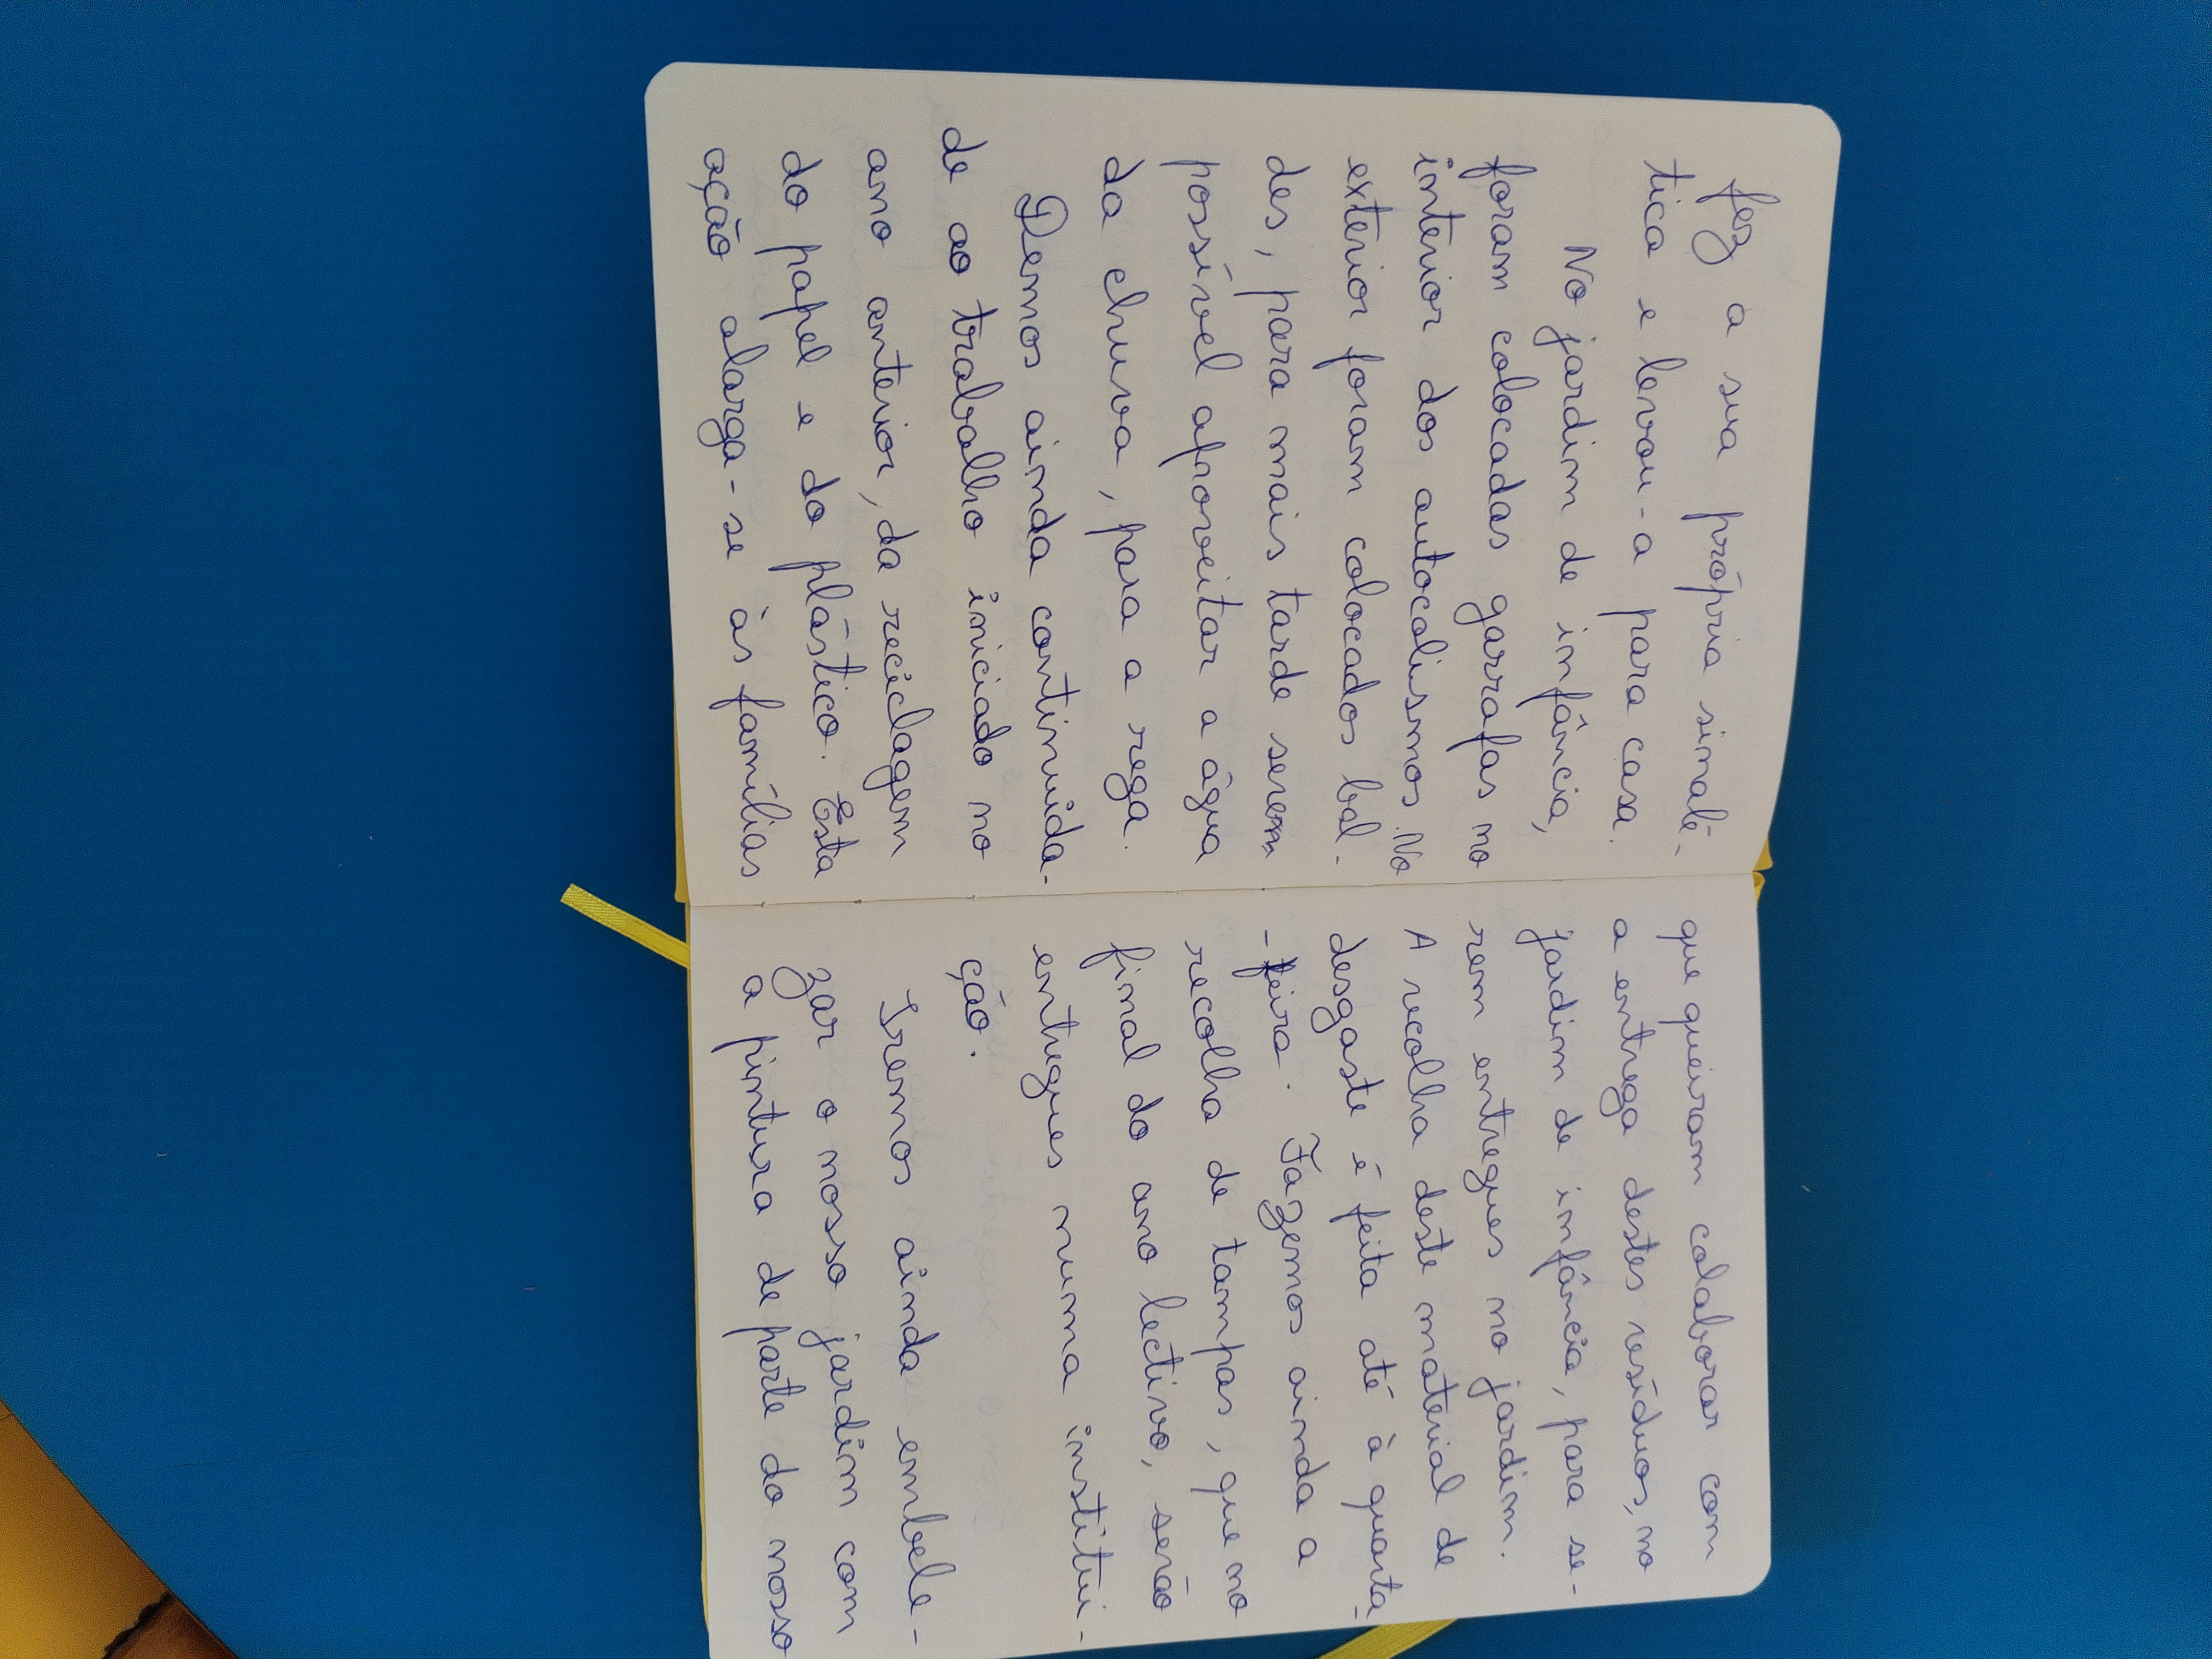 fez a sua própria sinalé-
tica e levou-a para casa.
No jardim de infância,
foram colocadas garrafas no
interior dos autoclismos. No
exterior foram colocados bal-
des, para mais tarde serem
possível aproveitar a água
da chuva, para a rega.
Demos ainda continuida-
de ao trabalho iniciado no
ano anterior, da reciclagem
do papel e do plástico. Esta
ação alarga-se às famílias
que queiram colaborar com
a entrega destes resíduos, no
jardim de infância, para se-
rem entregues no jardim.
A recolha deste material de
desgaste é feita até à quarta-
-feira. Fazemos ainda a
recolha de tampas, que no
final do ano lectivo, serão
entregues numa institui-
ção.
Iremos ainda embele-
zar o nosso jardim com
a pintura de parte do nosso